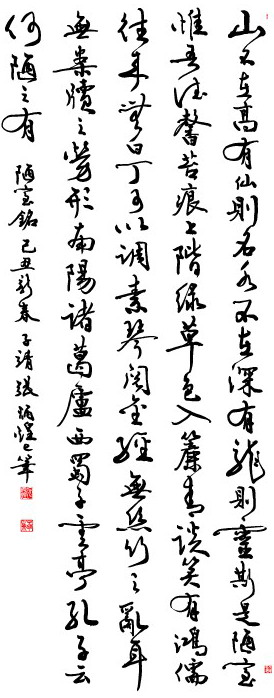 山不在高有仙則名水不在深有龍則靈斯是陋室
惟吾德馨苔痕上階綠草色入簾青談笑有鴻儒
往来無白丁可以調素琴閱金經無絲竹之亂耳
無案牘之勞形南陽諸葛廬西蜀子雲亭孔子云
何陋之有 陋室銘 己丑新春 子靖張炳煌e筆